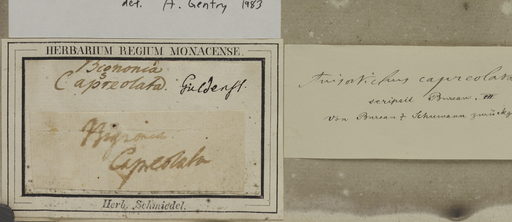 det. A. Gentry 1983
HERBARIUM REGIUM MONACENSE.
Bignonia
Capreolata. Güldenst.
Bignonia
Capreolata
Herb. Schmiedel.
Anisostichus capreolata
scripsit Bureau.
von Bureau & Schumann zurück